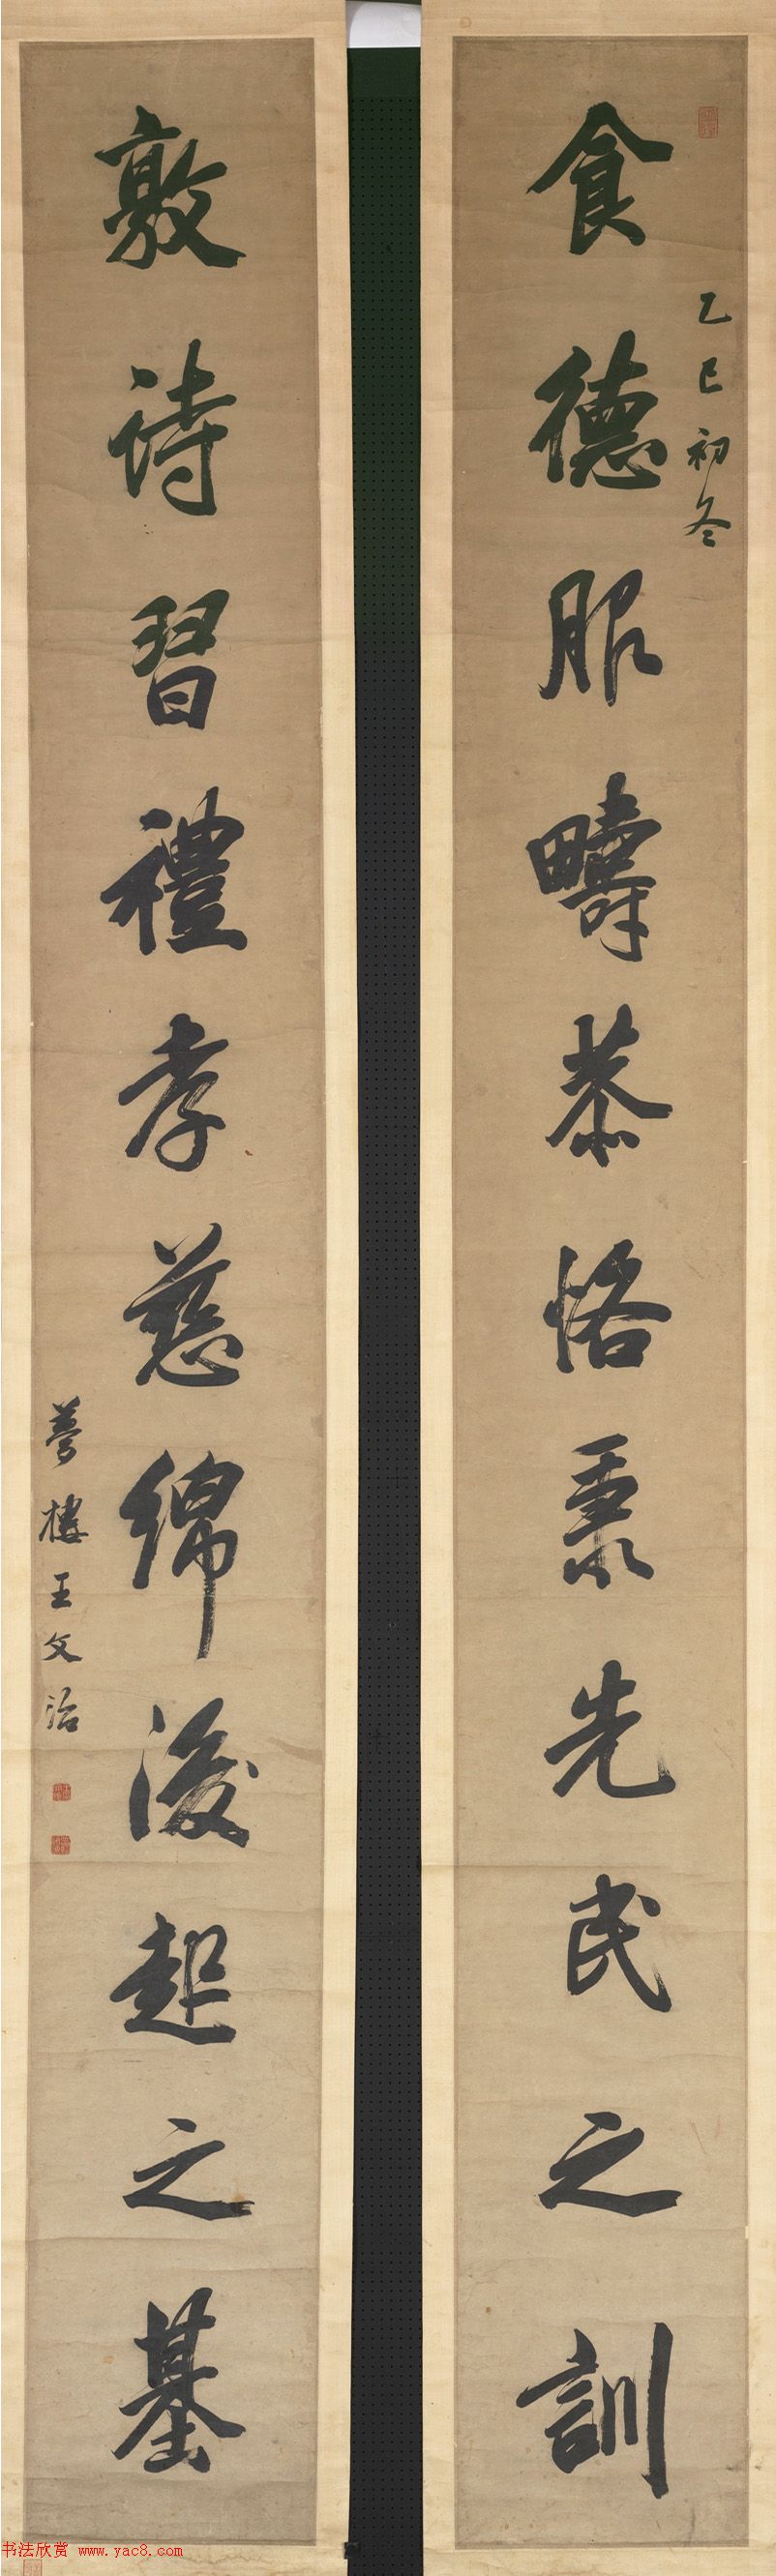 食德服疇恭恪秉先民之訓
乙巳初冬
敦诗習禮孝慈綿後起之基
夢樓王文治
书法欣赏 www.yac8.com